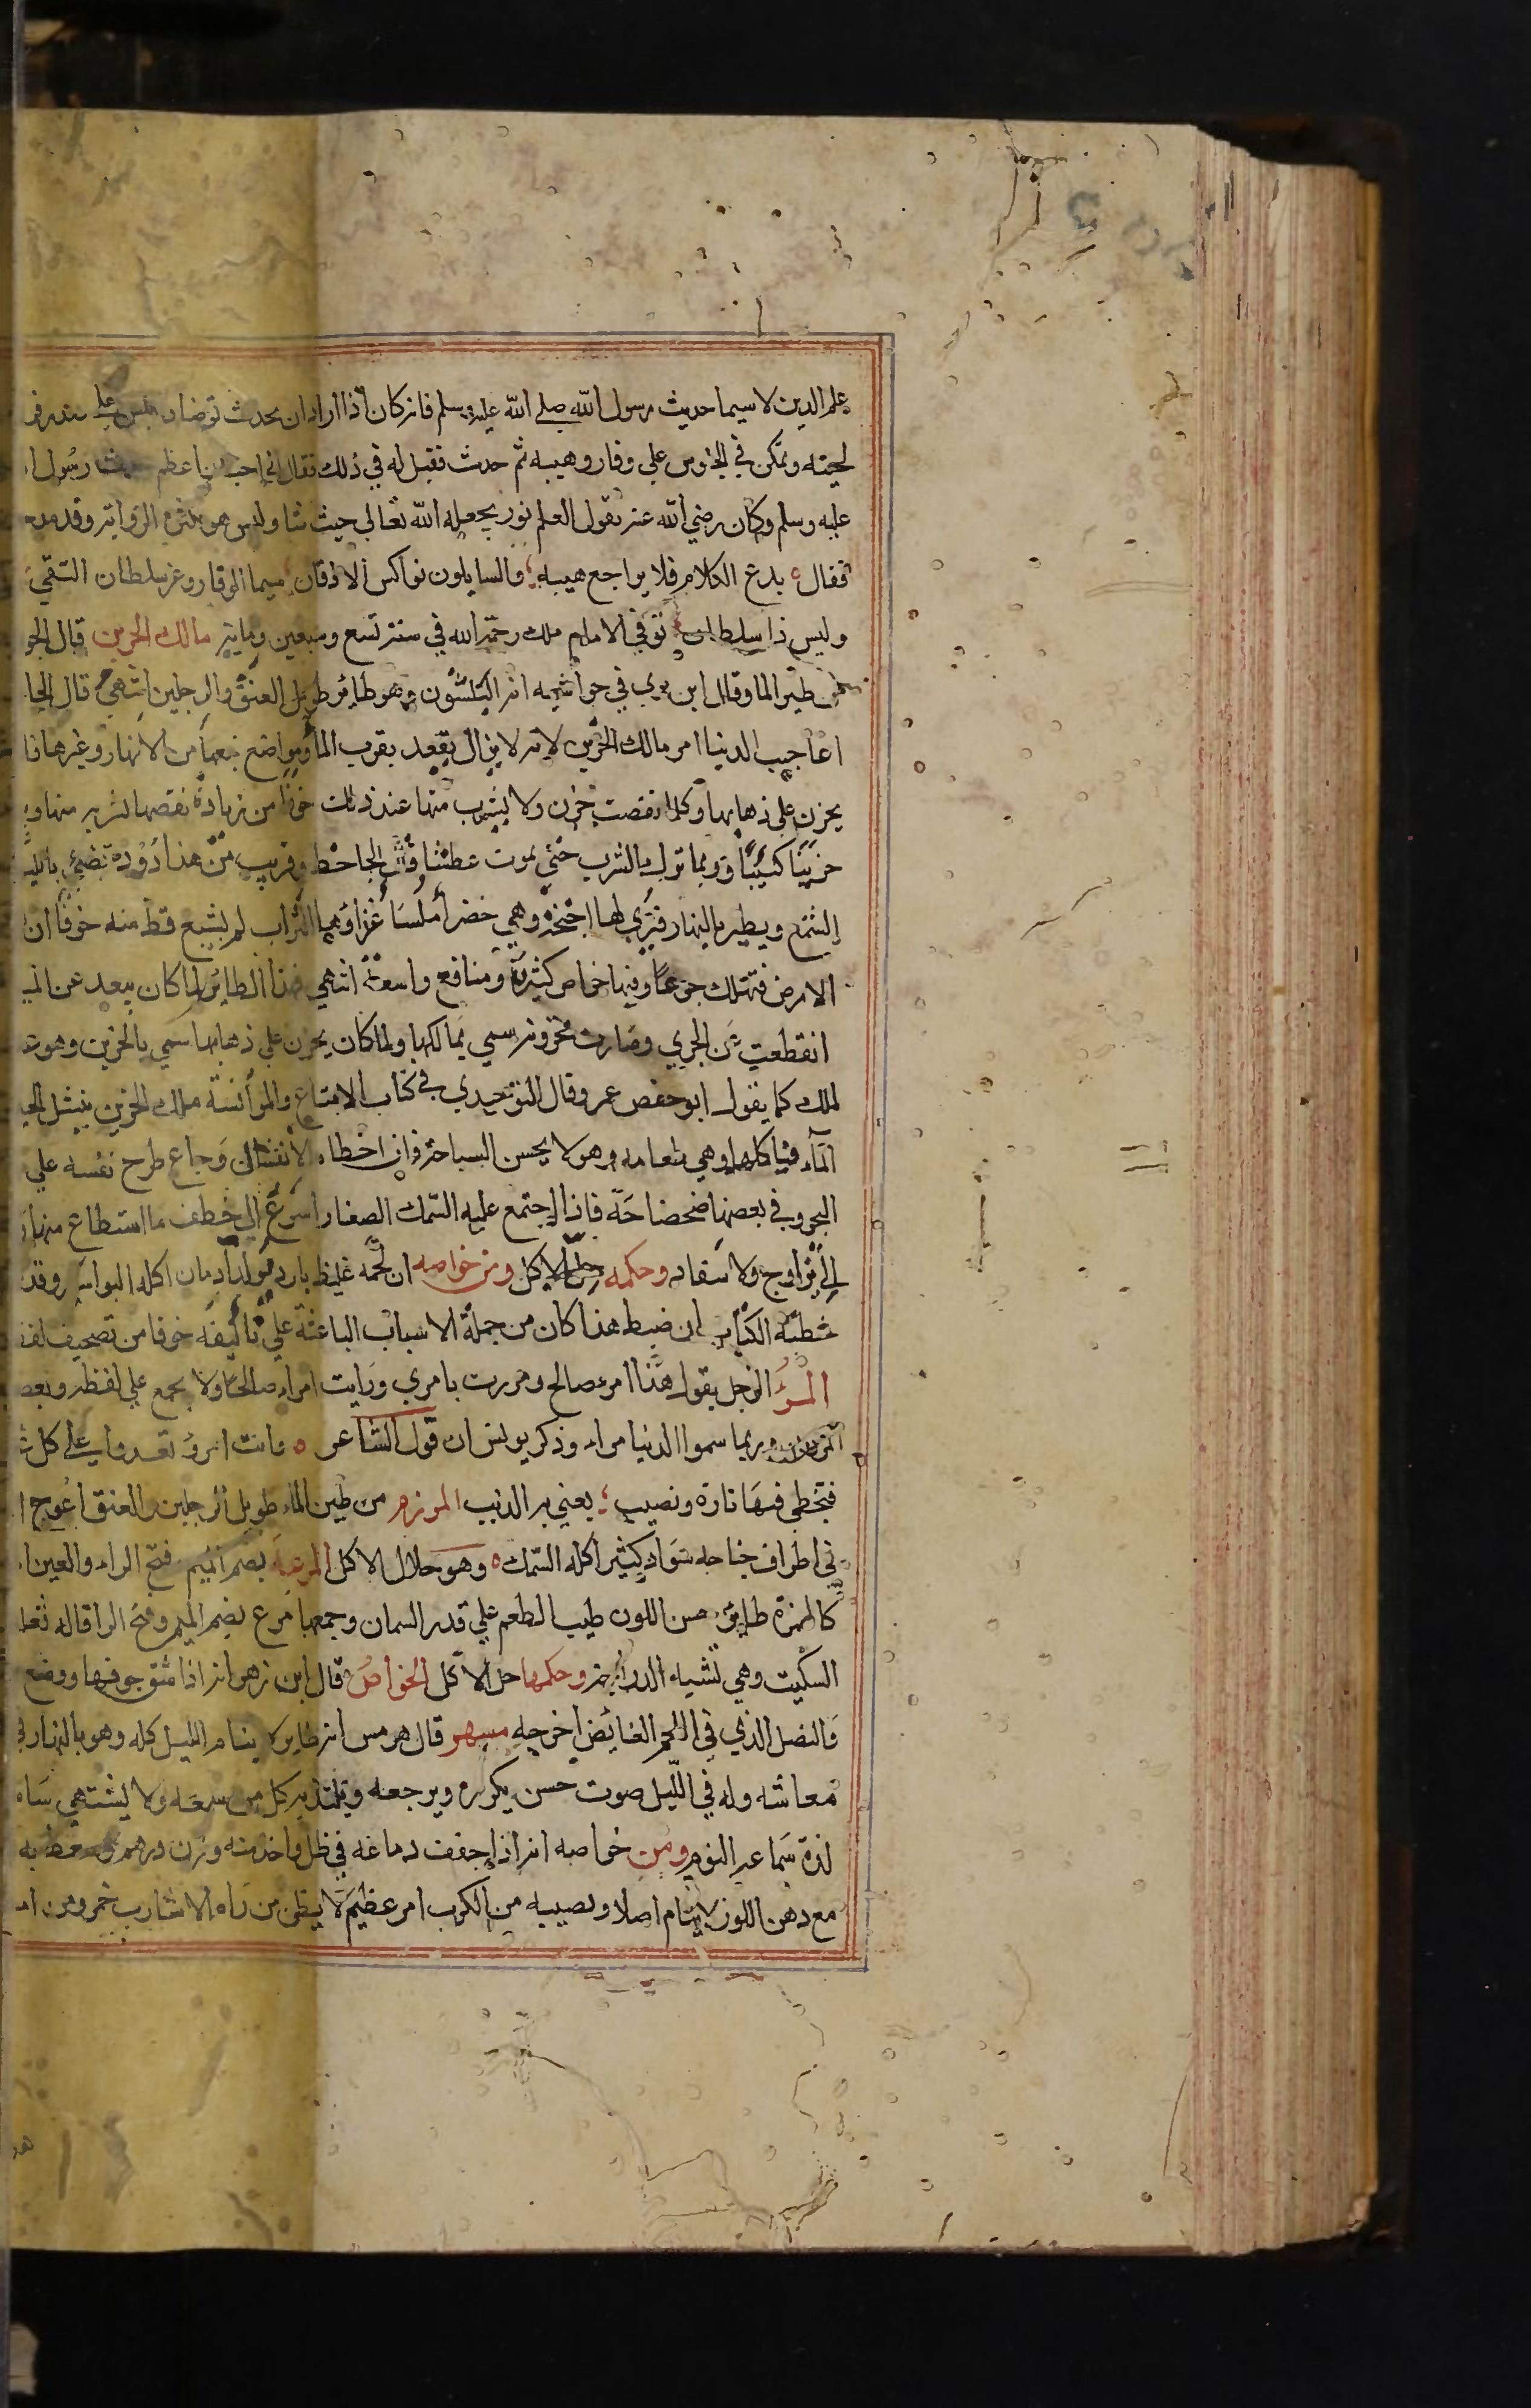 علم الدين لا سيما حديث رسول الله صلي الله عليه وسلم فانه كان اذا اراد ان يحدث توضا وجلس علي
لحيته وتمكن في الجلوس علي وقار وهيبه ثم حدث فقيل له في ذلك فقال اني احب ان اعظم حديث رسول ا
عليه وسلم وكان رضي الله عنه يقول العلم نور يجعله الله تعالي حيث شا وليس هو بكثرة الرواية وقد مدحه
فقال ٥ يدع الكلام فلا يراجع هيبه ؛ والسايلون نواكس الاذقان سيما الوقار وعز سلطان التقي
وليس ذا سلطان توفي الامام ملك رحمة الله في سنة تسع وسبعين وماية مالك الحزين قال الجو
من طير الما وقال ابن بري في حواشيه انه البلشون وهو طاير طويل العنق والرجلين انتهي قال الجا
اعاجيب الدنيا امر مالك الحزين لانه لا يزال يقعد بقرب الما ومواضع نبعها من الانهار وغيرها فا
يحزن علي ذهابها وكلما نقصت حزن ولا يشرب منها عند ذلك خوفا من زيادة نقصها لشربه منها و
حزينا كئيبا وربما ترك الشرب حتي يموت عطشا قال الجاحظ وقريب من هذا دودة تضئ بالليل
الشمع ويطير بالنهار فتري لها اجنحة وهي خضرا ملسا غذاؤها التراب لم يشبع قط منه خوفا ان
الارض فتهلك جوعا وفيها خواص كثيرة ومنافع واسعة انتهي فهذا الطائر لما كان يبعد عن الم
انقطعت عن الجري وصارت مخزونة سمي مالكها ولما كان يحزن علي ذهابها سمي بالحزين وهو
لملك كما يقول ابو حفص عمر وقال التوحيدي في كتاب الامتاع والموانسة ملك الحزين ينشل الحي
المآء فياكلها وهي طعامه وهو لا يحسن السباحة فان اخطاه الانتشال وجاع طرح نفسه علي
البحر وفي بعضها ضحضاحه فاذا اجتمع عليه السمك الصغار اسرع الي خطف ما استطاع منها
الي ازواج ولا سفاد وحكمه حل الاكل ومن خواصه ان لحمه غليظ بارد مولد ادمان اكله البواسير وقد
خطبة الكتاب ان ضبط هذا كان من جملة الاسباب الباعثة علي تاليفه خوفا من تصحيف لفظ
المرؤ الرجل يقول هذا امرء صالح ومررت بامري ورايت امراء صالحا ولا يجمع علي لفظه وبعض
وربما سموا الدنيا مراء وذكر يونس ان قول الشاعر ٥ وانت امرؤ تعدو علي كل
فتخطي فيها تارة ونصيب ؛ يعني به الذيب المرزم من طير الماء طويل الرجلين والعنق اعوج ا
في اطراف جناحه سواد كثير اكله السمك ٥ وهو حلال الاكل المرعة بضم الميم فتح الراء والعين ا
كالهمزة طاير حسن اللون طيب الطعم علي قدر السمان وجمعها مرع بضم الميم وفتح الرا قاله ثعلب
السكيت وهي تشبه الدراجة وحكمها حل الاكل الخواص قال ابن زهر انه اذا شق جوفها ووضع
والنصل الذي في اللحم الغائض اخرجه مسهر قال هرمس انه طاير لا ينام الليل كله وهو بالنهار في
معاشه وله في الليل صوت حسن يكرره ويرجعه ويلتذ به كل من سمعه ولا يشتهي سا
لذة سماعه النوم ومن خواصه انه اذا جفف دماغه في ظل واخذ منه وزن درهم
مع دهن اللوز لا ينام اصلا ويصيبه من الكرب امر عظيم لا يظن من راه الا شارب خمر ومن ا